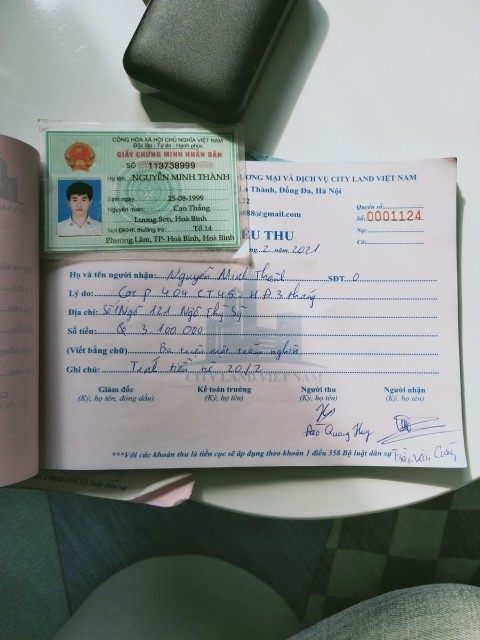 CỘNG HÒA XÃ HỘI CHỦ NGHĨA VIỆT NAM
Độc lập - Tự do - Hạnh phúc
GIẤY CHỨNG MINH NHÂN DÂN
SỐ 113738999
Họ tên: NGUYỄN MINH THÀNH
Sinh ngày: 25-08-1999
Nguyên quán: Cao Thắng
Lương Sơn, Hoà Bình
Nơi ĐKHK thường trú: Tổ 14
Phương Lâm, TP- Hoà Bình, Hoà Bình
ƯƠNG MẠI VÀ DỊCH VỤ CITY LAND VIỆT NAM
La Thành, Đống Đa, Hà Nội
888@gmail.com
Quyển số:
Số: 0001124
Nợ:
Có:
ẾU THU
2 năm 2021
Họ và tên người nhận: Nguyễn Minh Thành SĐT: 0
Lý do: Cọc P 404 CT45 HĐ 3 tháng
Địa chỉ: Số 1 Ngõ 121 Ngô Thị Sỹ
Số tiền: 3.100.000
(Viết bằng chữ) Ba triệu một trăm nghìn
Ghi chú: Tính tiền từ 20/2
CITY LAND VIET NAM
Giám đốc Kế toán trưởng Người thu Người nhận
(Ký, họ tên, đóng dấu) (Ký, họ tên) (Ký, họ tên) (Ký, họ tên)
Đào Quang Huy
***Với các khoản thu là tiền cọc sẽ áp dụng theo khoản 1 điều 358 Bộ luật dân sự
Bộ luật dân sự